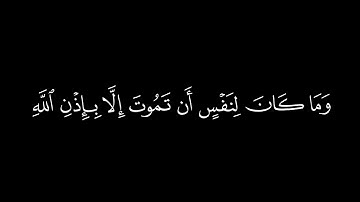 وَمَا كَانَ لِنَفۡسٍ أَن تَمُوتَ إِلَّا بِإِذۡنِ ٱللَّهِ